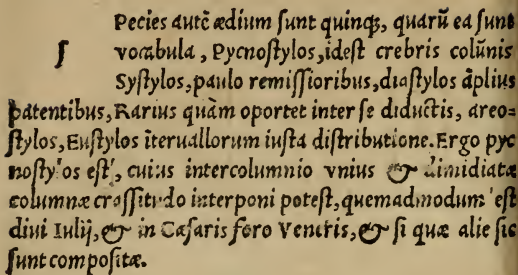 Pecies autē ædium ſunt quinqꝫ, quarū ea ſunt
ſ vocabula, Pycnoſtylos, ideſt crebris colūnis
Syſtylos, paulo remiſſioribus, diaſtylos āplius
patentibus, Rarius quàm oportet inter ſe diductis, areo=
ſtylos, Euſtylos īteruallorum iuſta diſtributione. Ergo pyc
noſtylos eſt, cuius intercolumnio vnius & dimidiatæ
columnæ craſſitudo interponi poteſt, quemadmodum eſt
diui Iulij, & in Cæſaris foro Veneris, & ſi quæ alie ſic
ſunt compoſitæ.